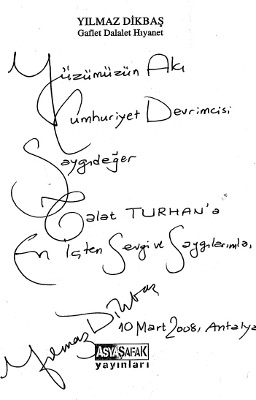 YILMAZ DİKBAŞ
Gaflet Dalalet Hıyanet
Yüzümüzün Akı
Cumhuriyet Devrimcisi
Saygıdeğer
Talat TURHAN'a
En İçten Sevgi ve Saygılarımla,
Yılmaz Dikbaş
10 Mart 2008, Antalya
ASYA ŞAFAK
yayınları